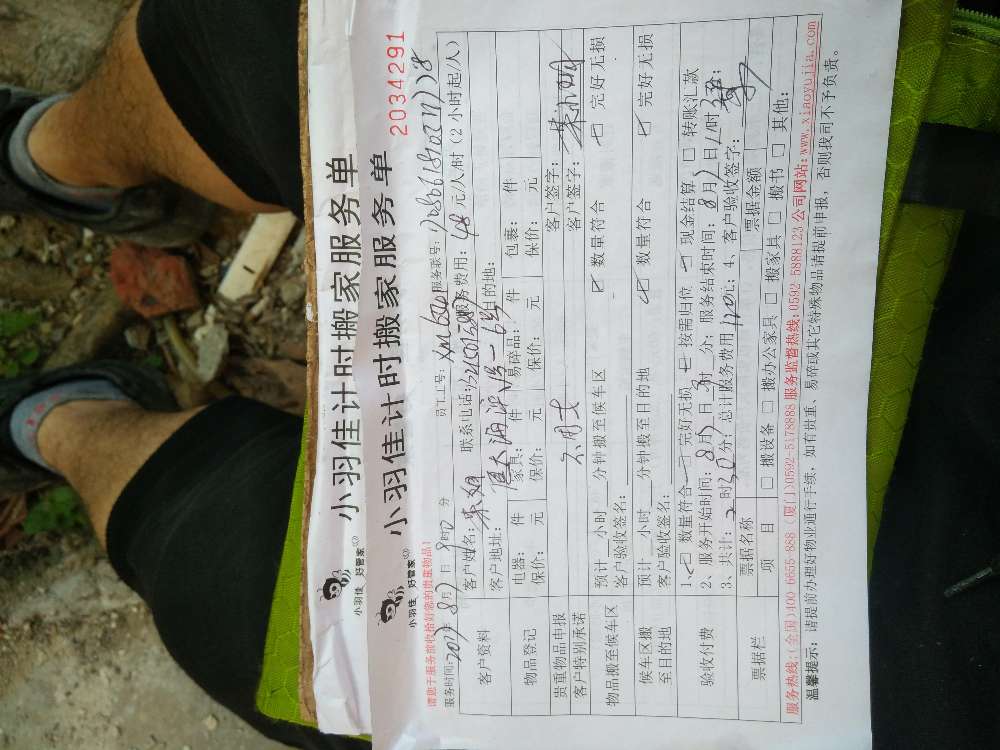 小羽佳计时搬家服务单
小羽佳 好管家
小羽佳计时搬家服务单
小羽佳 好管家
2034291
请您于服务前收拾好您的贵重物品！
服务时间：2017年8月7日 时 分 员工工号： 服务联号：
客户资料
客户姓名： 联系电话： 服务费用：48元/人/时（2小时起/人）
客户地址： 目的地：
物品登记
电器： 件 家具： 件 易碎品： 件 包裹： 件
保价： 元 保价： 元 保价： 元 保价： 元
贵重物品申报 客户签字：
客户特别承诺 不用卡 客户签字：
物品搬至候车区
预计__小时__分钟搬至候车区 数量符合 完好无损
客户验收签名：
候车区搬至目的地
预计__小时__分钟搬至目的地 数量符合 完好无损
客户验收签名：
验收付费
1、数量符合 完好无损 按需归位 现金结算 转账汇款
2、服务开始时间：8月7日 时 分；服务结束时间：8月7日11时 分
3、共计：2时30分；总计服务费用120元；4、客户验收签字：
票据栏
票据名称 票据金额
项目 搬设备 搬办公家具 搬家具 搬书 其他：
服务热线：(全国)400 0655 888 (厦门)0592-5178888 服务监督热线：0592 5888123 公司网站：www.xiaoyujia.com
温馨提示：请提前办理好物业通行手续，如有贵重、易碎或其它特殊物品请提前申报，否则我司不予负责。